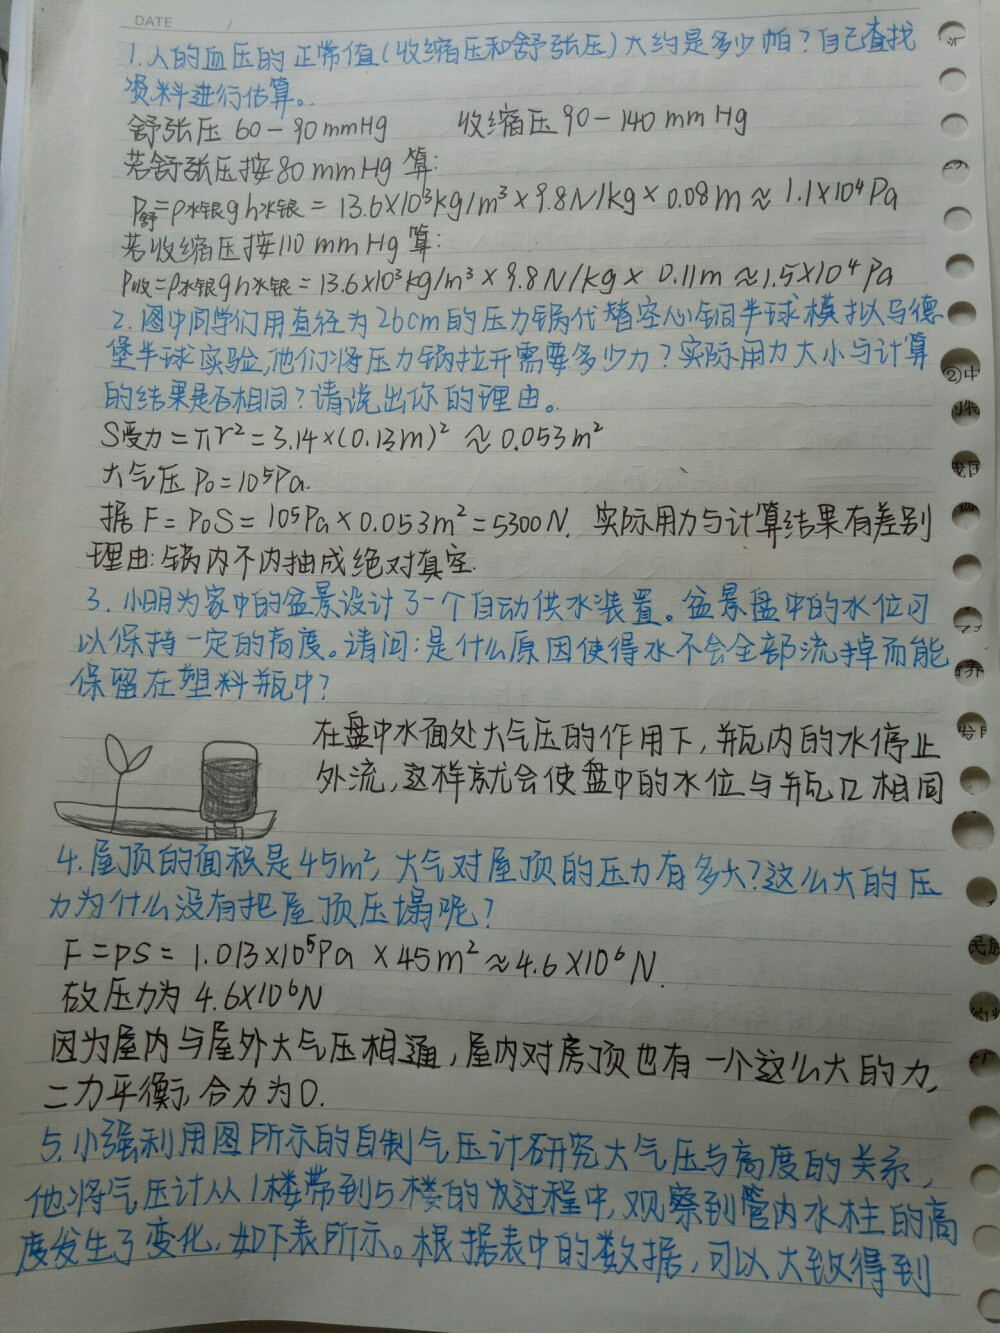 DATE /
1.人的血压的正常值(收缩压和舒张压)大约是多少帕?自己查找
资料进行估算。
舒张压 60-90mmHg 收缩压 90-140mmHg
若舒张压按80mmHg算:
P舒=ρ水银gh水银=13.6×10³kg/m³×9.8N/kg×0.08m≈1.1×10⁴Pa
若收缩压按110mmHg算:
P收=ρ水银gh水银=13.6×10³kg/m³×9.8N/kg×0.11m≈1.5×10⁴Pa
2.图中同学们用直径为26cm的压力锅代替空心铜半球模拟马德
堡半球实验,他们将压力锅拉开需要多少力?实际用力大小与计算
的结果是否相同?请说出你的理由。
S受力=πr²=3.14×(0.13m)²≈0.053m²
大气压P₀=10⁵Pa.
据F=P₀S=10⁵Pa×0.053m²=5300N. 实际用力与计算结果有差别
理由:锅内不内抽成绝对真空.
3.小明为家中的盆景设计了一个自动供水装置。盆景盘中的水位可
以保持一定的高度。请问:是什么原因使得水不会全部流掉而能
保留在塑料瓶中?
在盘中水面处大气压的作用下,瓶内的水停止
外流,这样就会使盘中的水位与瓶口相同
4.屋顶的面积是45m²,大气对屋顶的压力有多大?这么大的压
力为什么没有把屋顶压塌呢?
F=pS=1.013×10⁵Pa×45m²≈4.6×10⁶N.
故压力为4.6×10⁶N
因为屋内与屋外大气压相通,屋内对房顶也有一个这么大的力,
二力平衡,合力为0.
5.小强利用图所示的自制气压计研究大气压与高度的关系,
他将气压计从1楼带到5楼的过程中,观察到管内水柱的高
度发生了变化,如下表所示。根据表中的数据,可以大致得到
②中
我国
民族